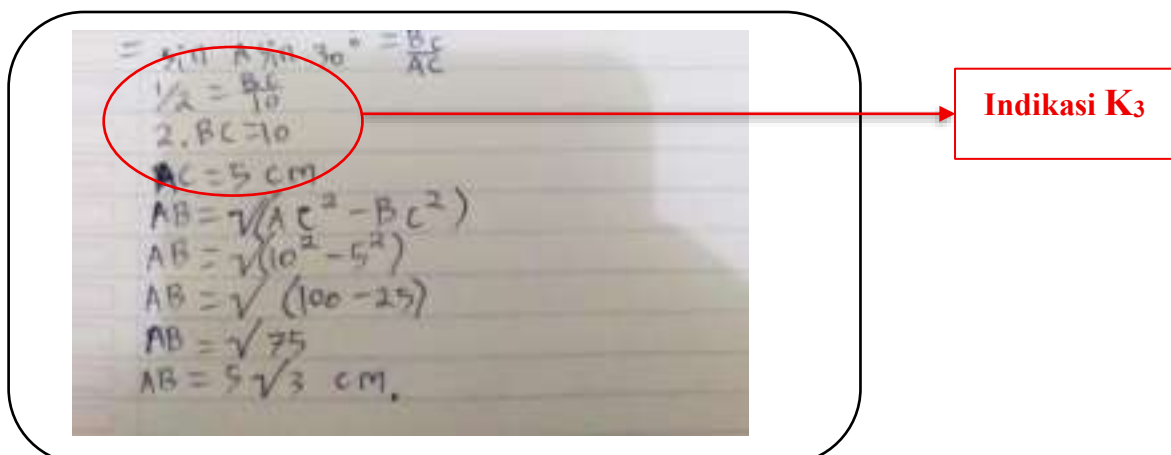 = sin A sin 30° = BC/AC
1/2 = BC/10
2. BC = 10
AC = 5 cm
AB = √(AC² - BC²)
AB = √(10² - 5²)
AB = √ (100 - 25)
AB = √ 75
AB = 5√3 cm.
Indikasi K₃